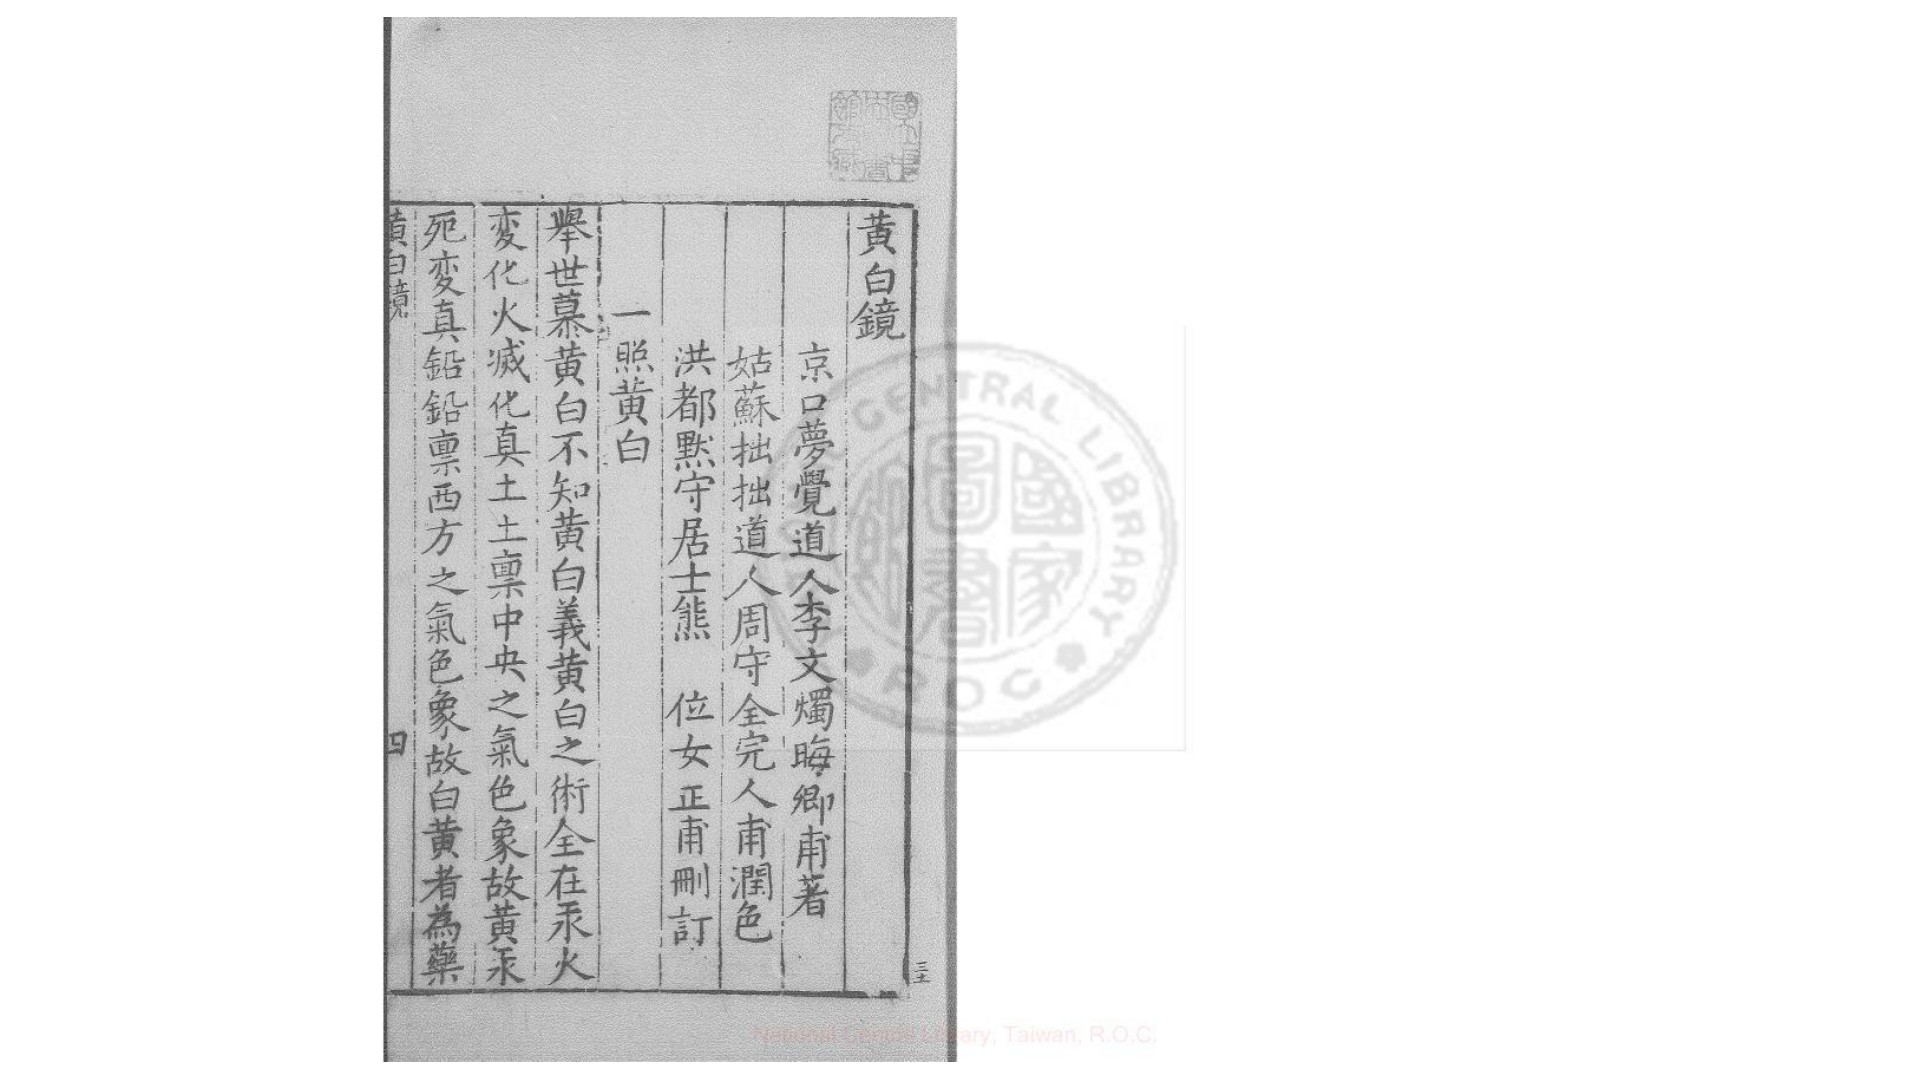 黄白鏡
京口夢覺道人李文燭晦卿甫著
姑蘇拙拙道人周守全完人甫潤色
洪都黙守居士熊　位女正甫刪訂
一照黄白
舉世慕黄白不知黄白義黄白之術全在汞火
変化火滅化真土土禀中央之氣色象故黄汞
死変真鉛鉛禀西方之氣色象故白黄者為藥
黄白鏡
四
CENTRAL LIBRARY
ROC
國家圖書館
National Central Library, Taiwan, R.O.C.